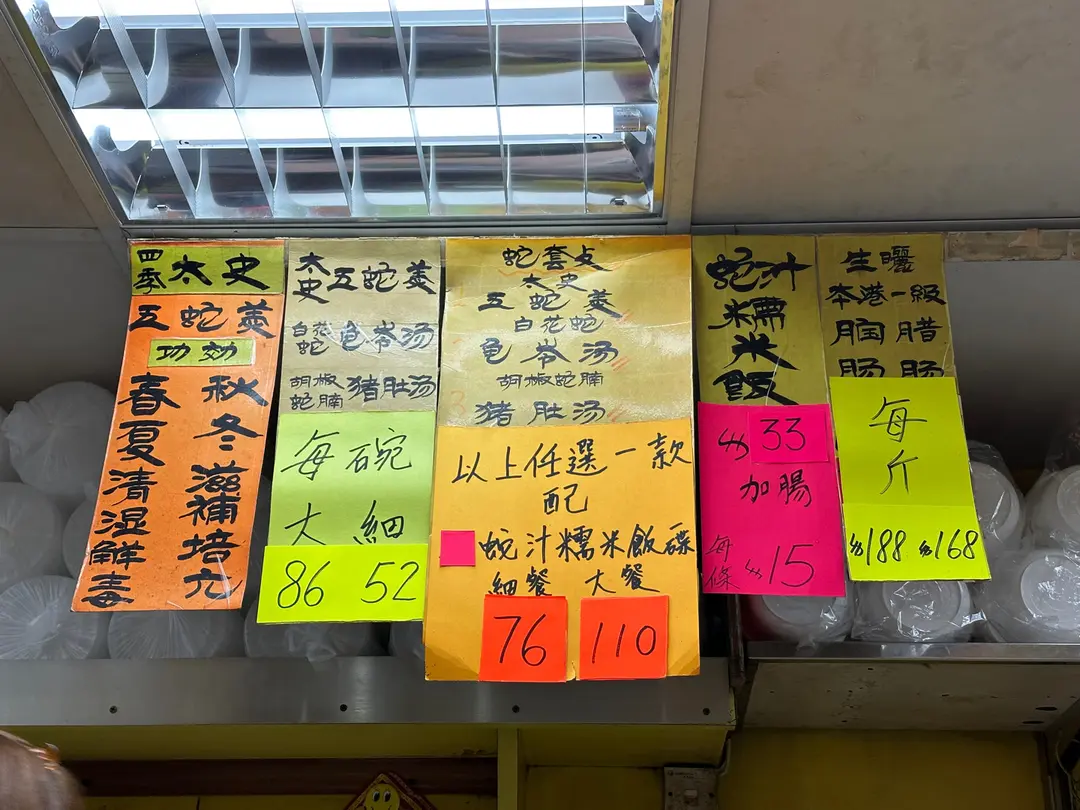 四季 太史
五蛇羹
功効
春夏清湿解毒
秋冬滋補培元
太史五蛇羹
白花蛇龟苓汤
胡椒蛇腩猪肚汤
每碗
大 細
86 52
蛇套点
太史
五蛇羹
白花蛇
龟苓汤
胡椒蛇腩
猪肚汤
以上任選一款
配
蛇汁糯米飯碟
細餐 大餐
76 110
蛇汁
糯
米
飯
33
加腸
每條 15
生曬
本港一級
腊
肠 肠
每
斤
188 168